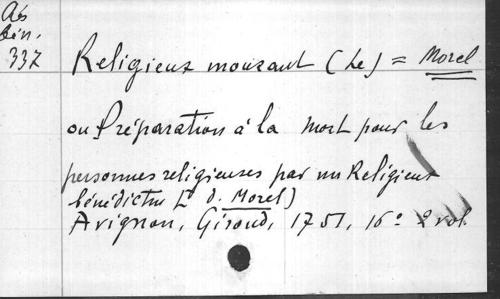 Ab
bén.
337
Religieux mourant (Le) = Morel
ou Préparation à la Mort pour les
personnes religieuses par un Religieux
bénédictin [D. Morel)
Avignon, Giroud, 1751, 16° 2 vol.